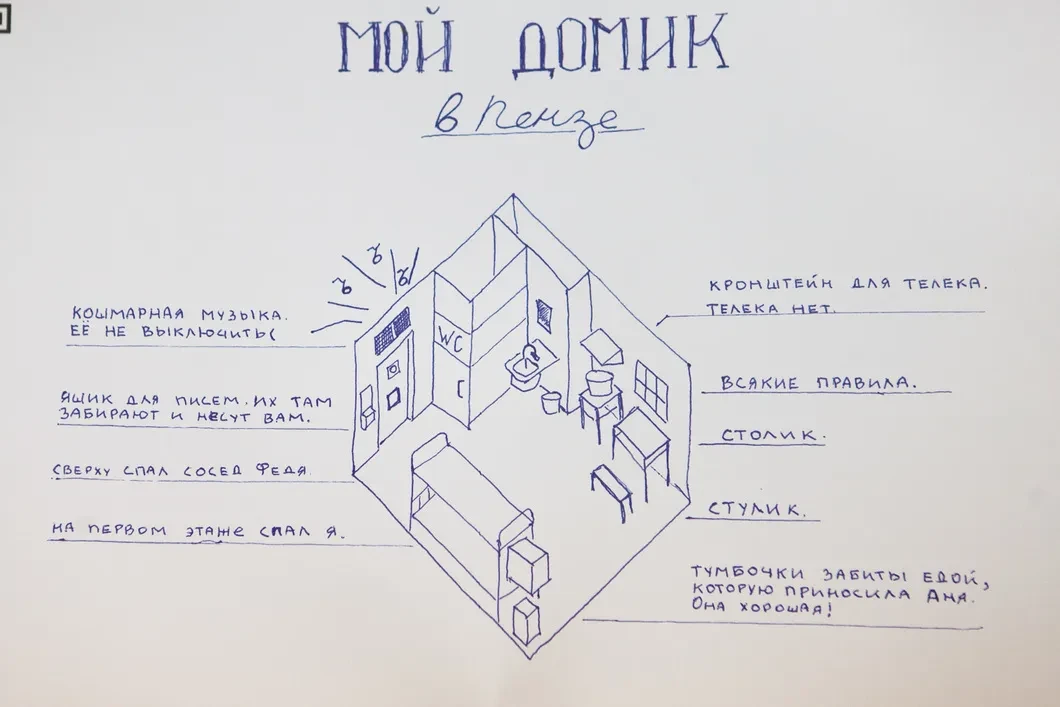 МОЙ ДОМИК
в Пензе
КОШМАРНАЯ МУЗЫКА.
ЕЁ НЕ ВЫКЛЮЧИТЬ(
ЯЩИК ДЛЯ ПИСЕМ. ИХ ТАМ
ЗАБИРАЮТ И НЕСУТ ВАМ.
СВЕРХУ СПАЛ СОСЕД ФЕДЯ.
НА ПЕРВОМ ЭТАЖЕ СПАЛ Я.
Ъ
Ъ
Ъ
WC
КРОНШТЕЙН ДЛЯ ТЕЛЕКА.
ТЕЛЕКА НЕТ.
ВСЯКИЕ ПРАВИЛА.
СТОЛИК.
СТУЛИК.
ТУМБОЧКИ ЗАБИТЫ ЕДОЙ,
КОТОРУЮ ПРИНОСИЛА АНЯ.
ОНА ХОРОШАЯ!